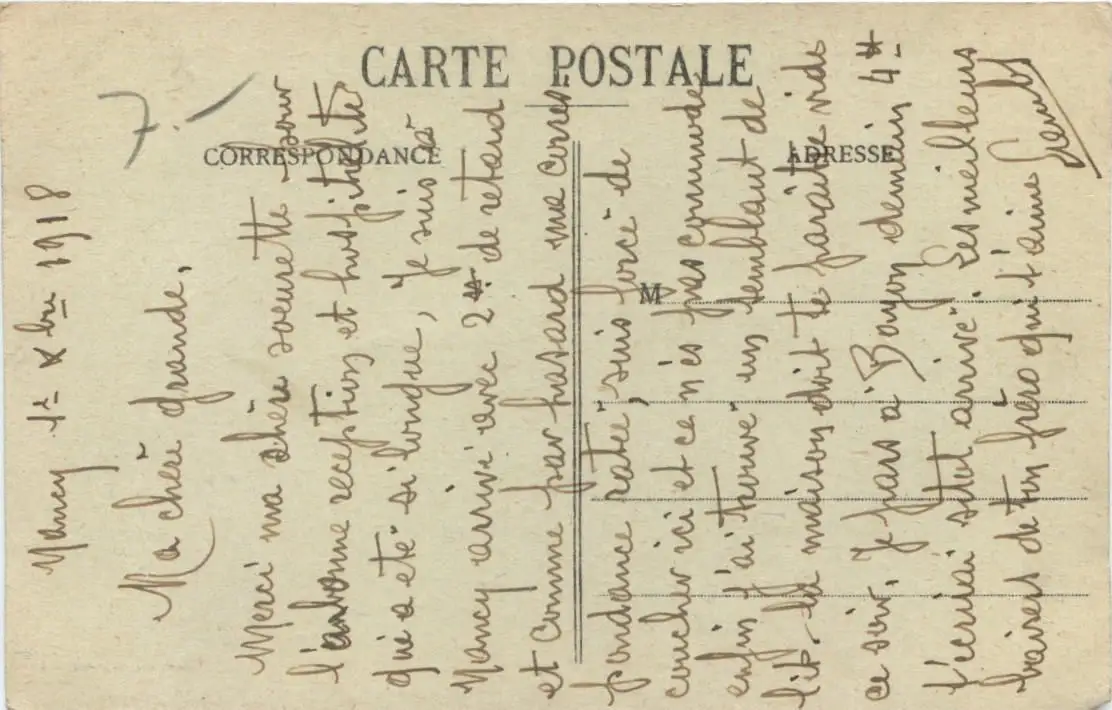 CARTE POSTALE
CORRESPONDANCE
ADRESSE
M
7.-
Nancy 1e Xbre 1918
Ma chère grande,
Merci ma chère soeurette pour
bonne reception et hospitalité
qui a été si longue, je suis
Nancy arrivé avec 2h de retard
et comme par hasard ma corres
pondance ratée, suis forcé de
coucher ici et ce n'es pas commode,
enfin j'ai trouvé un semblant de
lit. La maison doit te paraître vide
ce soir. Je pars a Bayon demain 4h
t'ecrirai sitot arrivé. Les meilleurs
baisers de ton frère qui t'aime